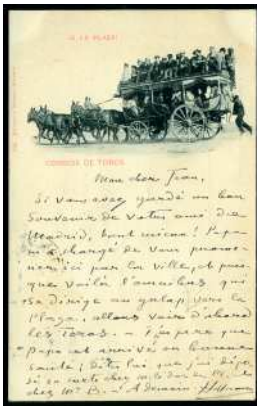 ¡A LA PLAZA!
CORRIDA DE TOROS
Mon cher Jean,
Si vous avez gardé un bon
souvenir de votre ami de
Madrid, tant mieux! Papa
m'a chargé de vous prome-
ner ici par la ville, et puis-
que voilà l'omnibus qui
se dirige au galop vers la
Plaza, allons voir d'abord
les Toros. - J'espère que
Papa est arrivé en bonne
santé; dites lui que j'ai déjà
chez Mr B. - A demain